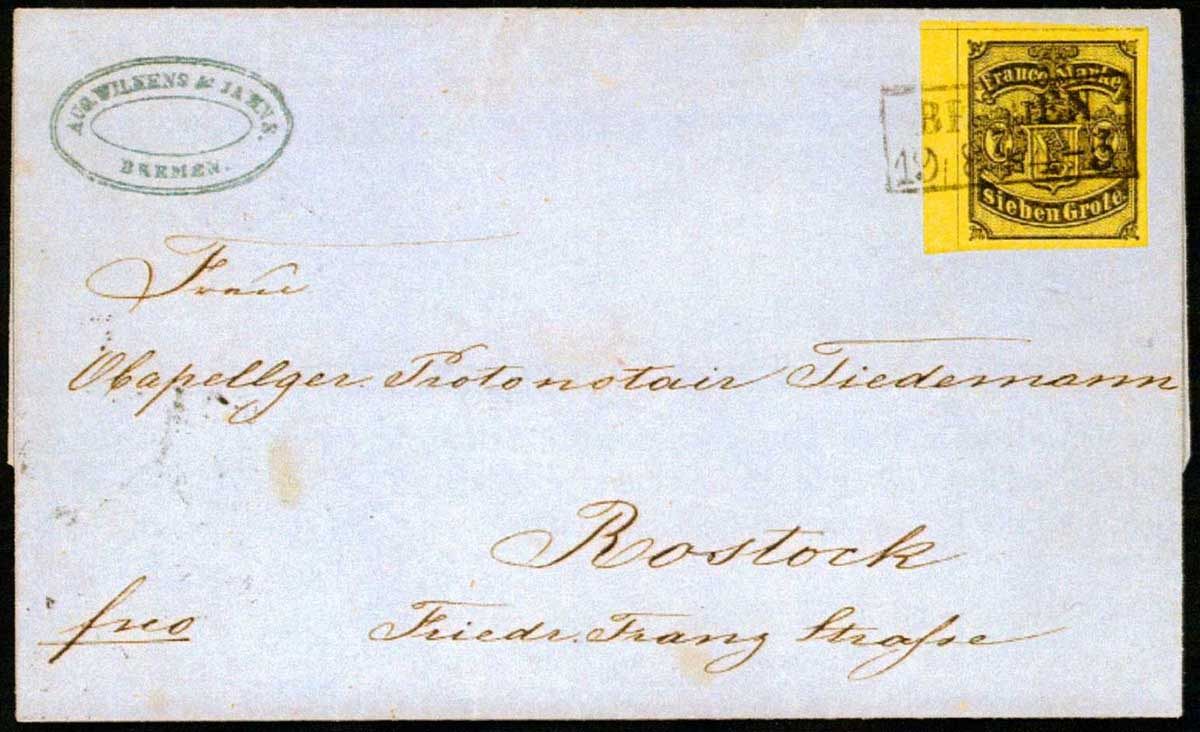 AUG. WILKENS & JAHNS.
BREMEN.
Franco Marke
7
sieben Grote.
BREMEN
19 8
Frau
Obapellger. Protonotair Tiedemann
Rostock
Friedr. Franz Straße
frco